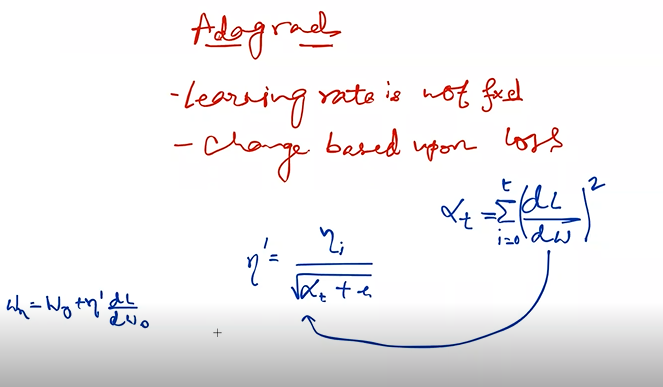 Adagrad
- Learning rate is not fxd
- Change based upon loss
αₜ = Σᵢ₌₀ᵗ (dL/dW)²
η' = ηᵢ / √(αₜ + e)
Wn = W0 + η' dL/dW0